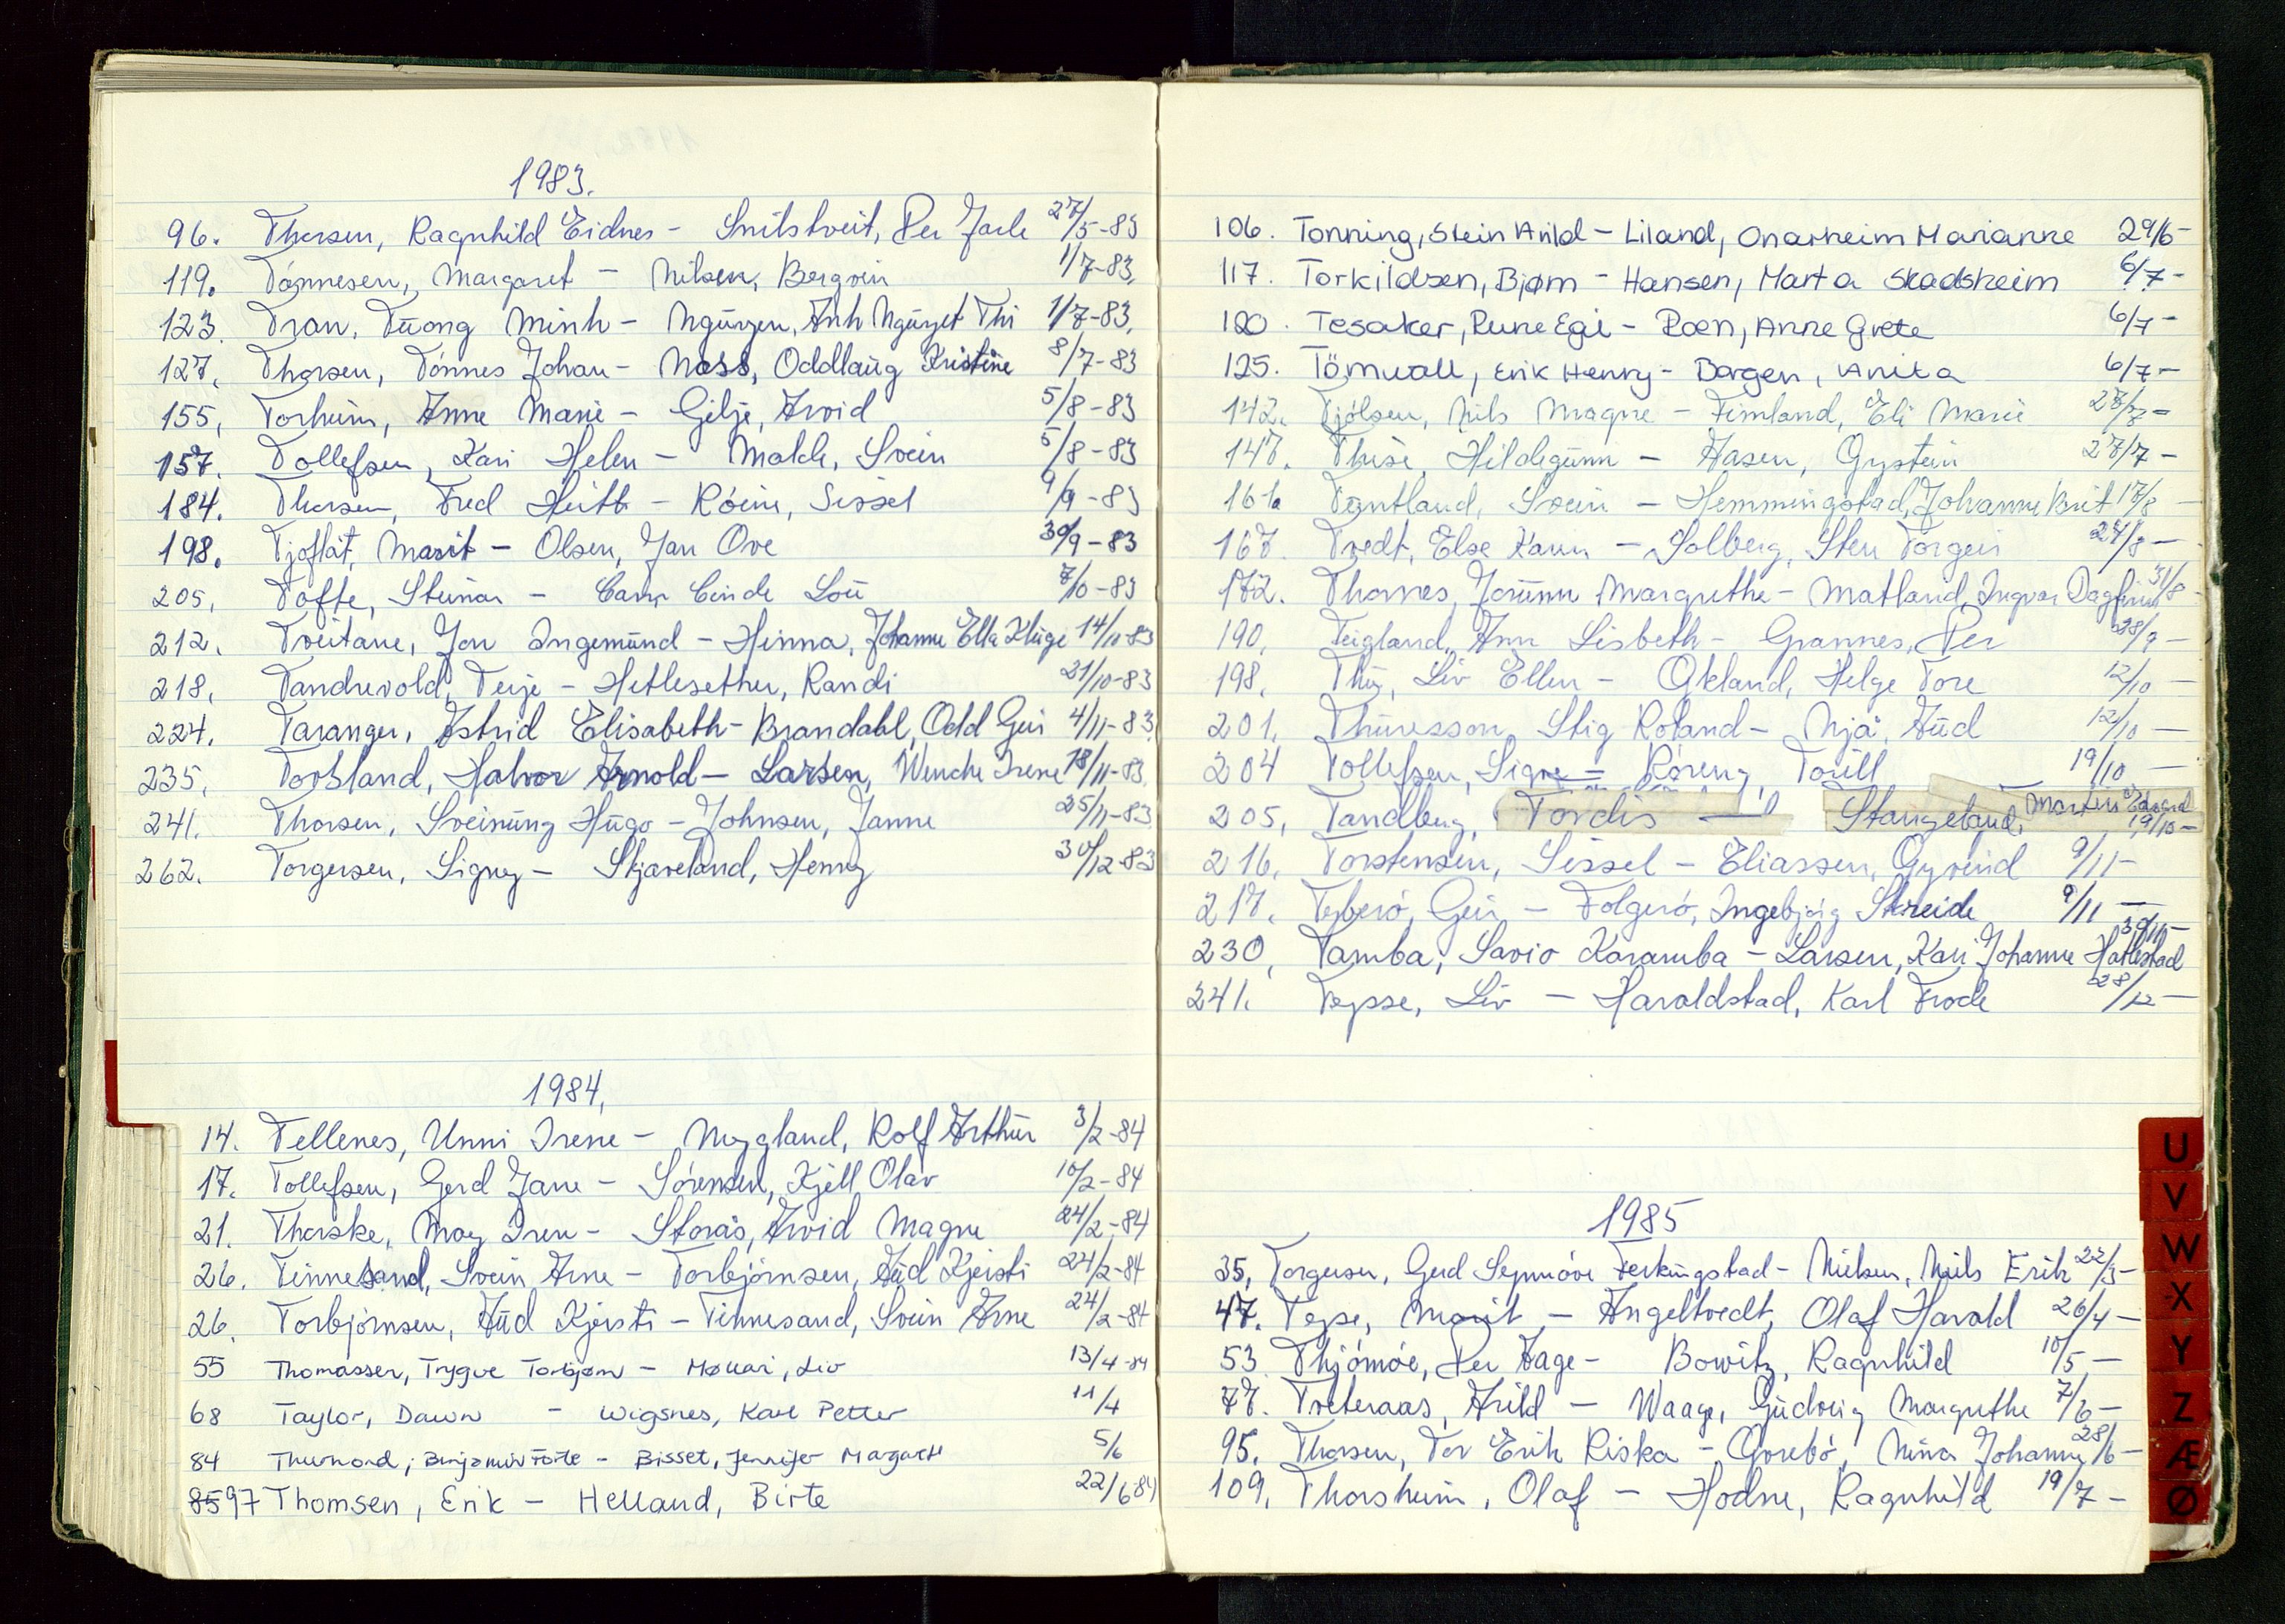 1983.
96. Thorsen, Ragnhild Eidnes - Snilstveit, Per Jarle 27/5-83
119. Tónnesen, Margaret - Nilsen, Bergvin 1/7-83.
123. Tran, Tuong Minh - Nguyen, Anh Nguyet Thi 1/7-83.
127. Thorsen, Tónnes Johan - Næss, Oddlaug Kristine 8/7-83
155, Torheim, Anne Marie - Gilje, Arvid 5/8-83
157. Tollefsen, Kari Helen - Molde, Svein 5/8-83
184. Thorsen, Fred - Sissel 9/9-83
198. Tjoflåt, Marit - Olsen, Jan Ove 30/9-83
205, Tofte, Steinar - Carr, Cinde Lou 7/10-83
212. Tveitane, Jon Ingemund - Hinna, Johanne Ella Kluge 14/10-83
218, Tandrevold, Terje - Hetlesether, Randi 21/10-83
224. Taranger, Astrid Elisabeth - Brandahl, Odd Geir 4/11-83
235. Torsland, Halvor Arnold - Larsen, Wenche Irene 18/11-83
241. Thorsen, Sveinung Hugo - Johnsen, Janne 25/11-83
262. Torgersen, Signy - Skjaveland, Henny 30/12-83
1984,
14. Tellenes, Unni Irene - Nygland, Rolf Arthur 3/2-84
17. Tollefsen, Gerd Jane - Sórensen, Kjell Olav 10/2-84
21. Thorske, May Iren - Storås, Arvid Magne 24/2-84
26. Tinnesand, Svein Arne - Torbjórnsen, Aud Kjersti 24/2-84
26. Torbjórnsen, Aud Kjersti - Tinnesand, Svein Arne 24/2-84
55 Thomassen, Trygve Torbjørn - Liv 13/4-84
68 Taylor, Dawn - Wigsnes, Karl Petter 11/4
84 Benjamin - Bisset, Jennifer Margaret 5/6
85 97 Thomsen, Erik - Helland, Birte 22/6 84
106. Tonning, Stein Arild - Liland, Onarheim Marianne 29/6-
117. Torkildsen, Bjørn - Hansen, Marta Skadsheim 6/7-
120. Tesaker, Rune Egil - Roen, Anne Grete 6/7-
125. Törnvall, Erik Henry - Borgen, Anita 6/7-
142. Tjólsen, Nils Magne - Fimland, Eli Marie 27/7-
147. Thise, Hildegunn - Aasen, Øystein 27/7-
161. Tøntland, Svein - Hemmingstad, Johanne Brit 17/8-
167. Tvedt, Else Karin - Solberg, Sten Torgeir 24/8-
172. Thornes, Jorunn Margrethe - Matland, Ingvar Dagfinn 31/8-
190, Teigland, Ann Lisbeth - Grannes, Per 28/9-
198, Thu, Liv Ellen - Økland, Helge Tore 12/10-
201. Thuresson, Stig Roland - Njå, Aud 12/10-
204 Tollefsen, Signe - Torill 19/10-
205, Tandberg, Tordis - Stangeland, Morten Edvard 19/10-
216. Torstensen, Sissel - Eliassen, Øyvind 9/11-
217. Tyberó, Geir - Folgeró, Ingebjórg Skreide 9/11-
230, Tamba, Savio Karamba - Larsen, Kari Johanne Hatlestad 30/11-
241. Tysse, Liv - Haraldstad, Karl Frode 28/12-
1985
35, Torgersen, Gerd Synnóve Ferkingstad - Nielsen, Niels Erik 22/3-
47. Tepse, Marit - Angeltvedt, Olaf Harald 26/4-
53 Thjómóe, Per Aage - Bowitz, Ragnhild 10/5-
77. Tveteraas, Arild - Waage, Gudveig Margrethe 7/6-
95. Thorsen, Tor Erik Riska - Gorebó, Nina Johanne 28/6-
109, Thorsheim, Olaf - Hodne, Ragnhild 19/7-
U
V
W
X
Y
Z
Æ
Ø